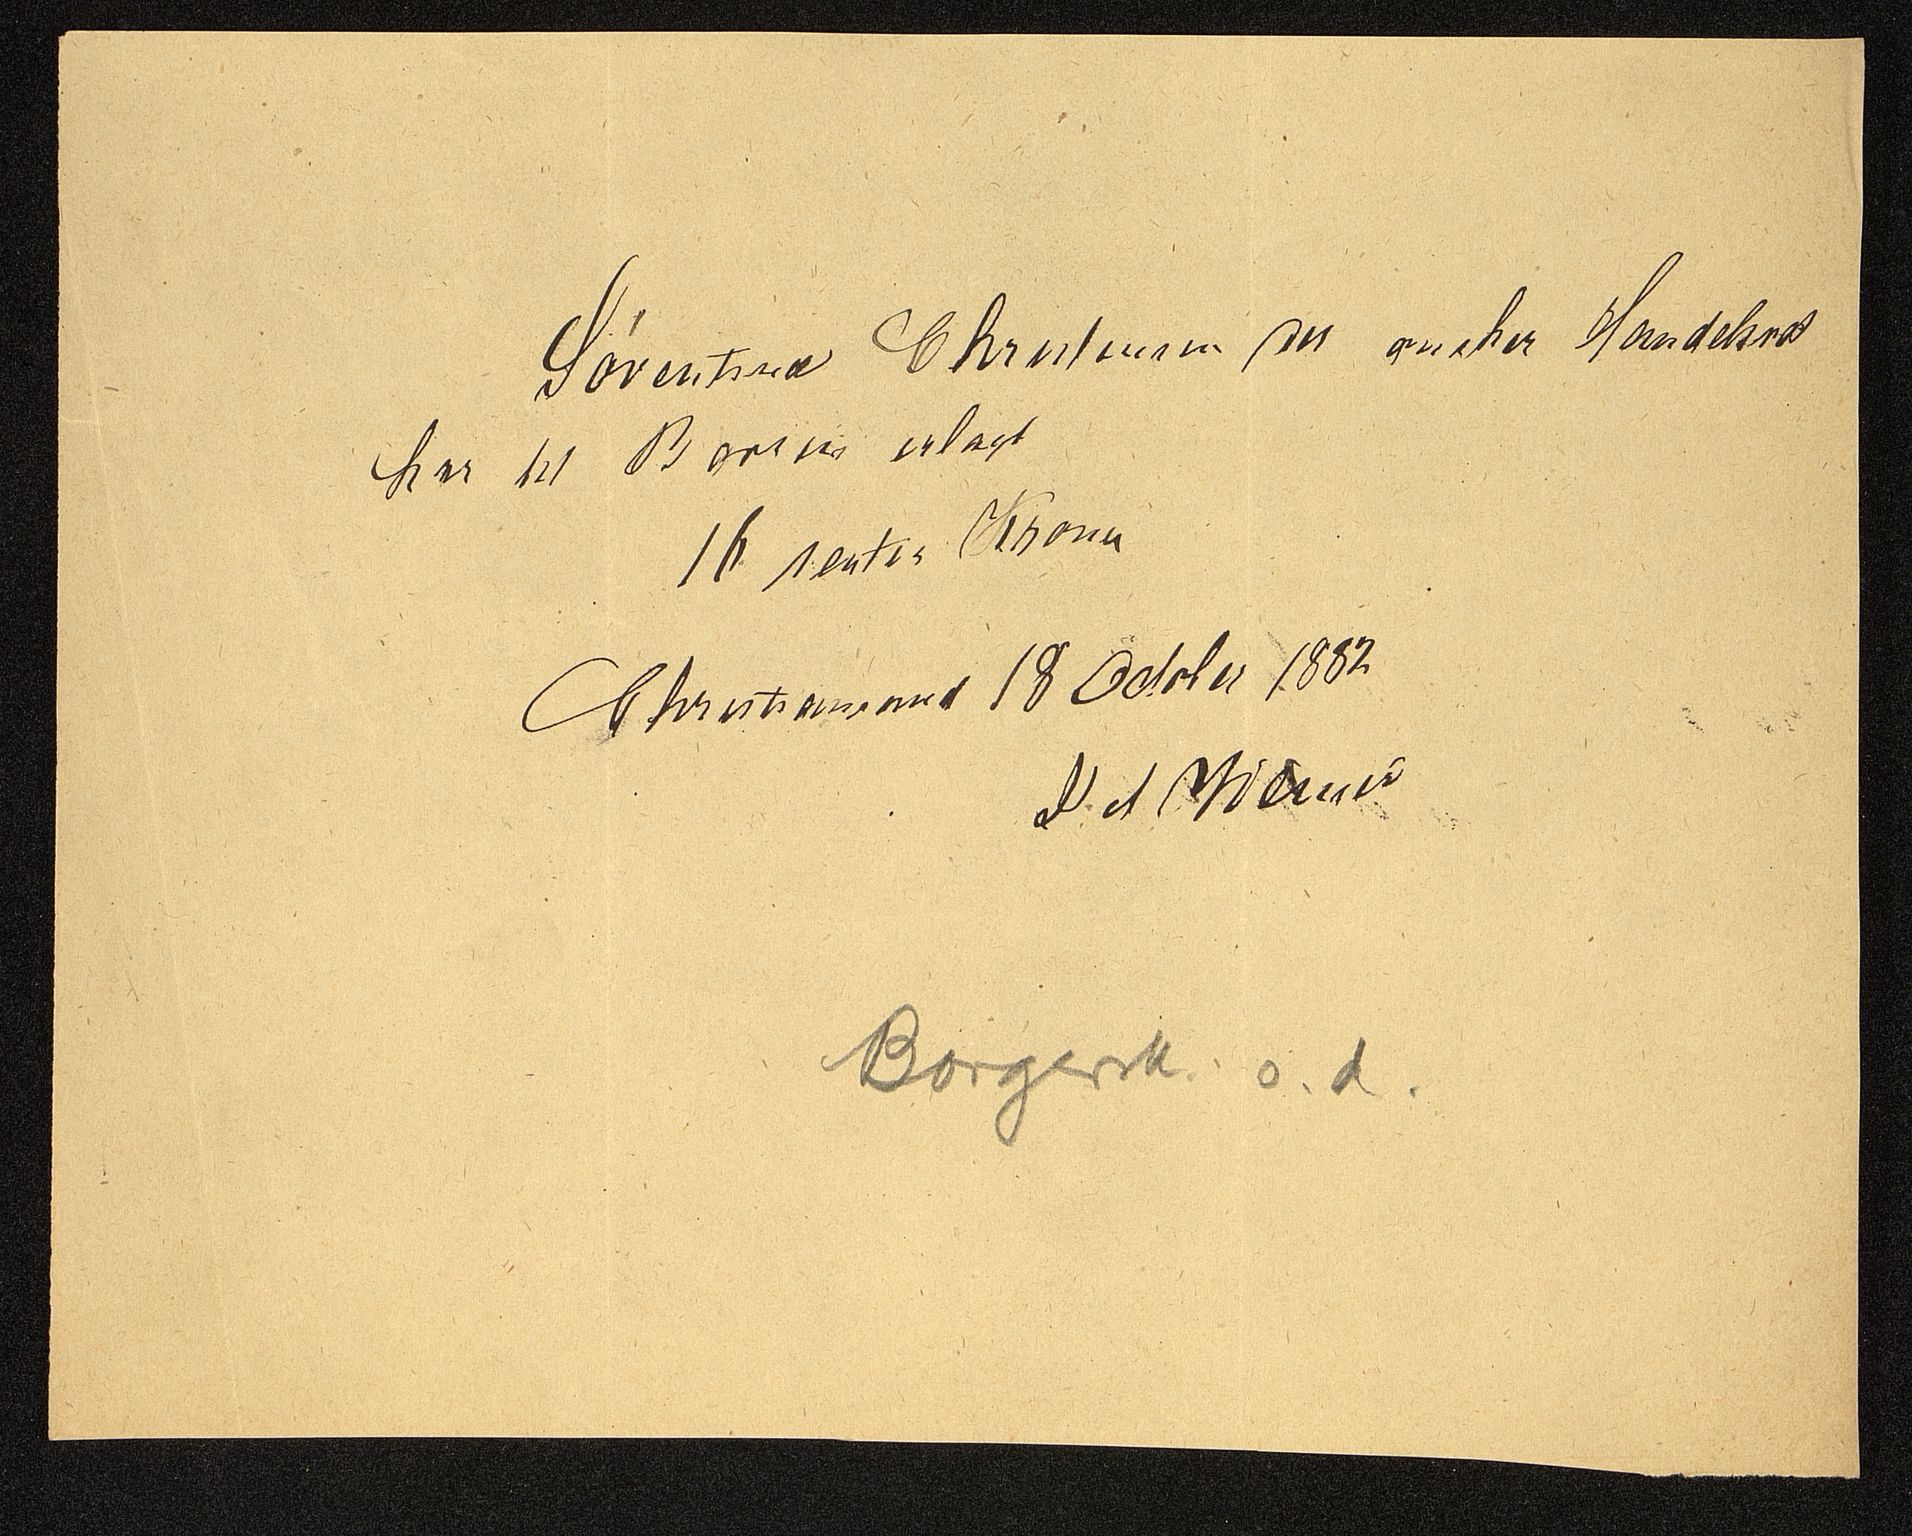 Sørentine Christensen der ønsker Handelsret
har til Børsen erlagt
16 sexten Kroner
Christianssand 18 October 1882
Werner
Borgersk. s. d.